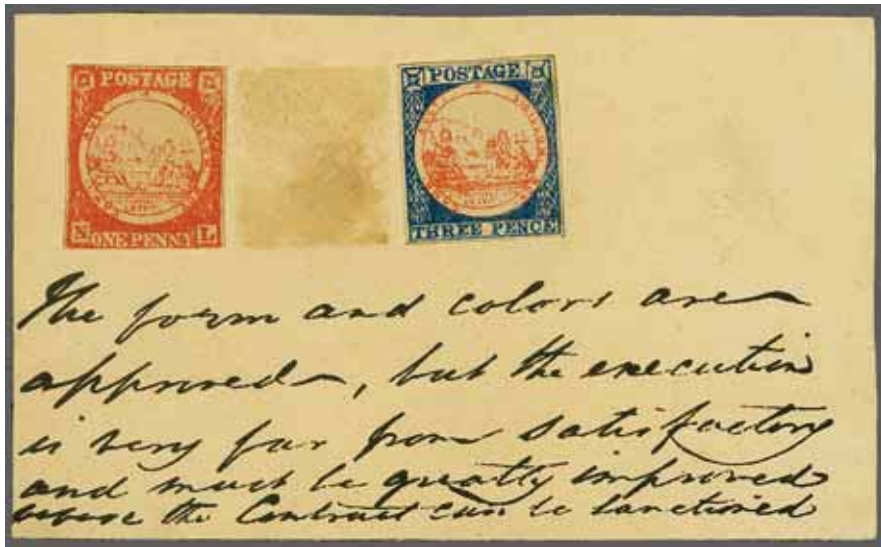 POSTAGE
N ONE PENNY L
POSTAGE
THREE PENCE
The form and colors are
approved, but the execution
is very far from satisfactory
and must be greatly improved
before the Contract can be sanctioned